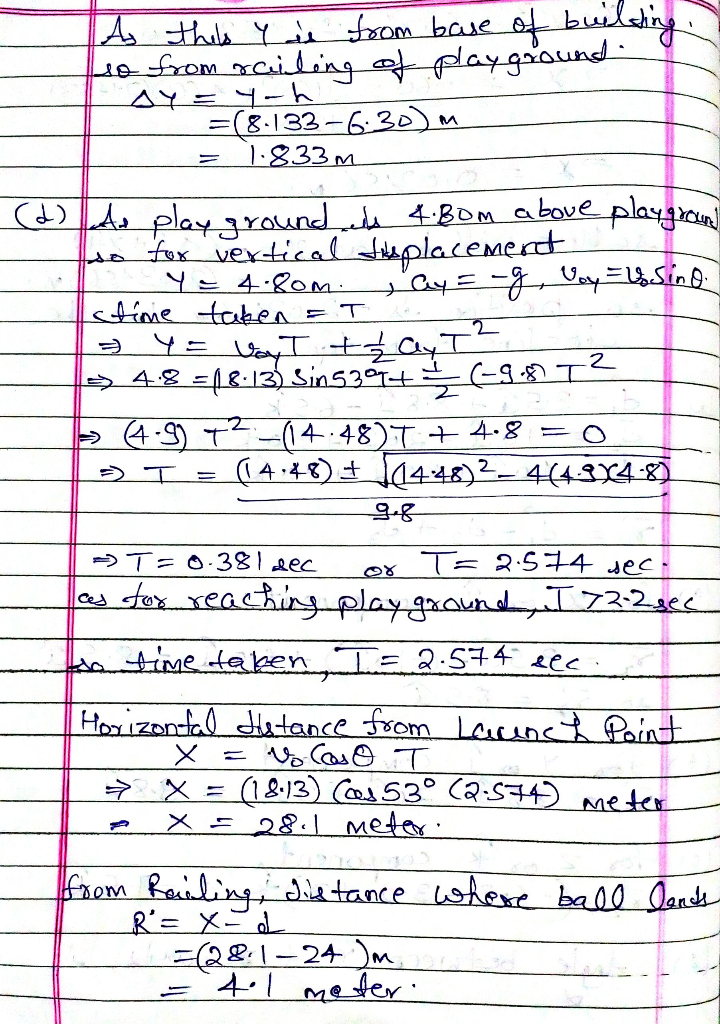 As this Y is from base of building.
so from railing of playground.
ΔY = Y-h
=(8.133-6.30) m
= 1.833 m
(d) As play ground is 4.80m above playground
so for vertical displacement
Y = 4.80m. , ay = -g, Voy = V₀Sinθ.
time taken = T
⇒ Y = VoyT + 1/2 ayT²
⇒ 4.8 = (18.13) Sin53°T + 1/2 (-9.8) T²
⇒ (4.9) T² - (14.48)T + 4.8 = 0
⇒ T = (14.48) ± √(14.48)² - 4(4.9)(4.8)
9.8
⇒ T = 0.381 sec or T = 2.574 sec.
as for reaching playground, T > 2.2 sec
so time taken, T = 2.574 sec.
Horizontal distance from Launch Point
X = V₀ Cosθ T
⇒ X = (18.13) Cos 53° (2.574) meter
⇒ X = 28.1 meter.
from Railing, distance where ball lands
R' = X - d
=(28.1-24)m
= 4.1 meter.